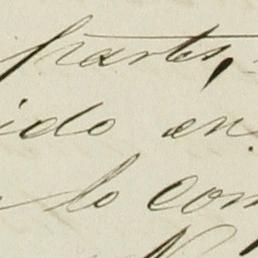 partes,
ido en
lo com